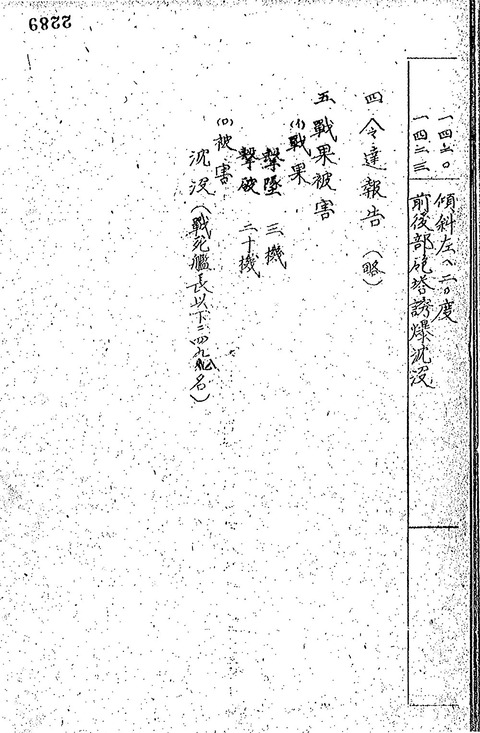 2289
一四二〇 傾斜左、二〇度
一四二三 前後部砲塔誘爆沈没
四 令達報告 (略)
五 戦果被害
(イ)戦果
撃墜 三機
撃破 二十機
(ロ)被害
沈没(戦死艦長以下二四九八名)